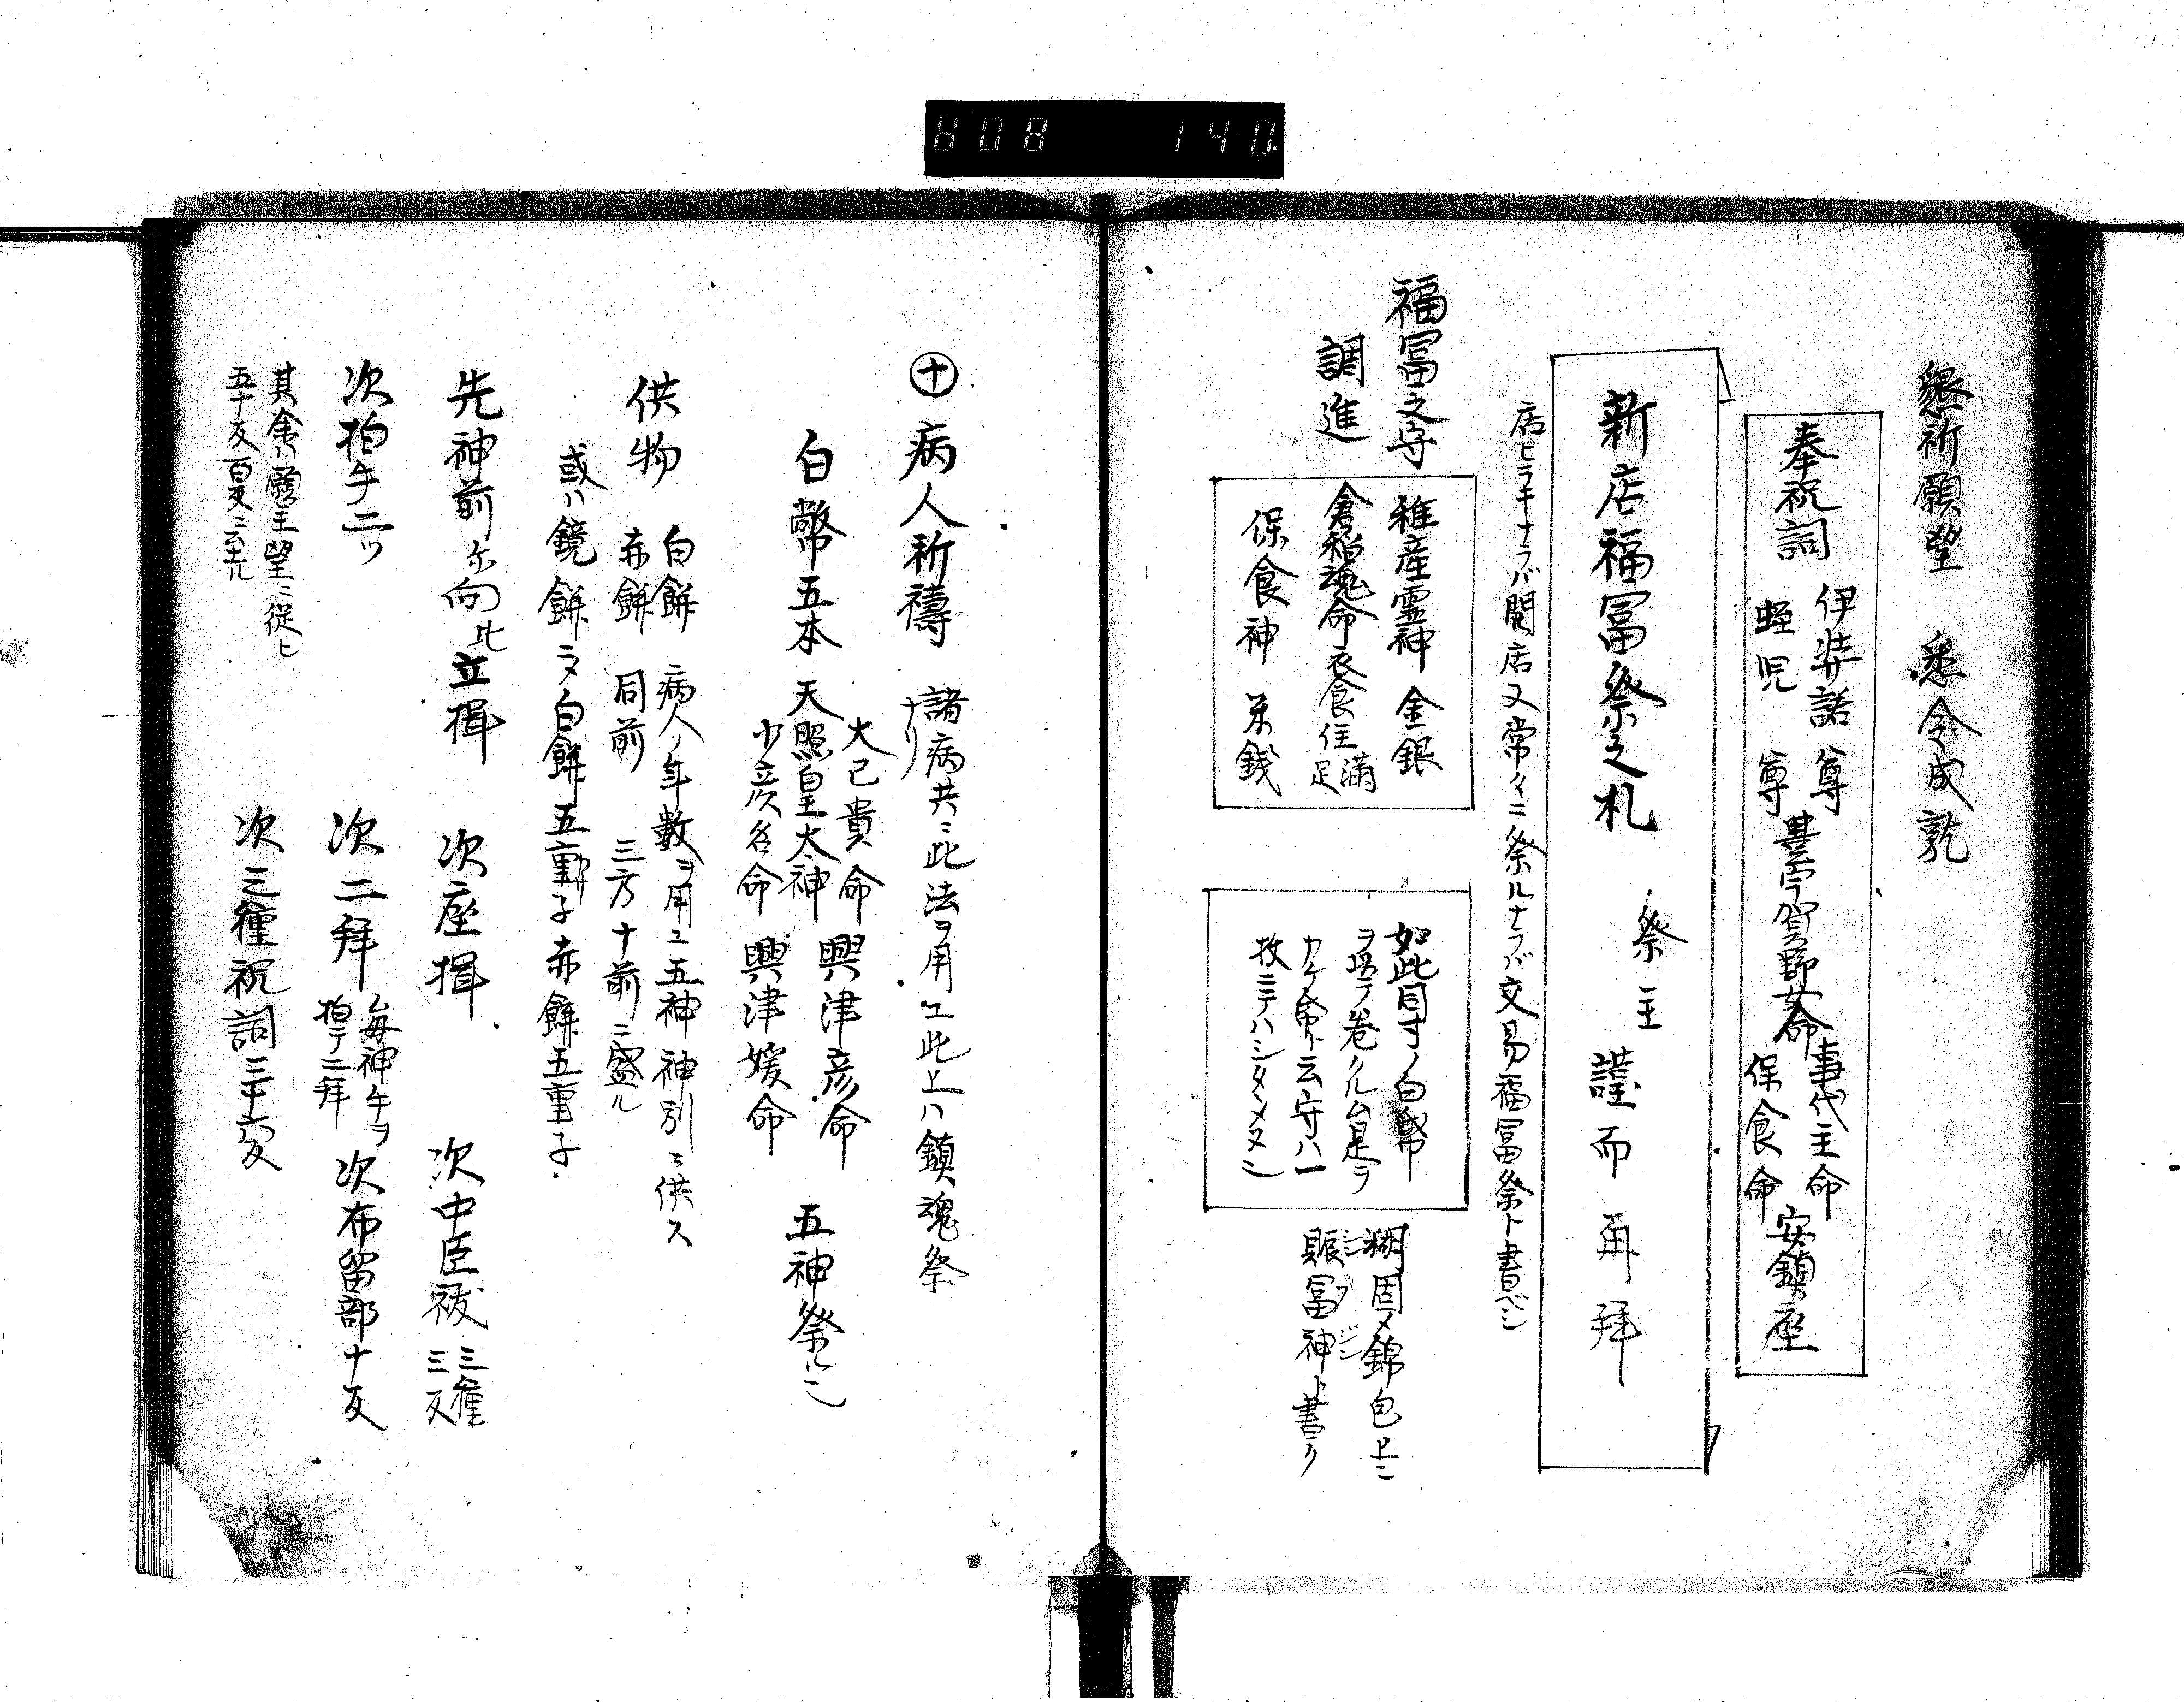 808 140
懇祈願望 悉令成就
奉祝詞
伊弉諾尊
蛭児尊
豊宇賀野女命
事代主命
保食命
安鎮座
新店福冨祭之札 祭主 謹而再拜
店ヒラキナラバ開店又常〻ニ祭ルナラバ交易福冨祭ト書ベシ
福冨之守
調進
稚産霊神 金銀
倉稲魂命 衣食住満足
保食神 米銭
如此同寸ノ白幣
ヲ巻
是ヲ
幣ト云守ハ一
枚ミテハシタヽメヌ
糊固メ錦包上ニ
賑冨神ト書り
㊉病人祈禱 諸病共ニ此法ヲ用エ此上ハ鎮魂祭
ナリ
白幣五本
大己貴命
天照皇太神
少彦名命
興津彦命
興津媛命
五神祭
供物
白餅 病人ノ年数ヲ用エ五神神別ニ供ス
赤餅 同前 三方十前ニ盛ル
或ハ鏡餅ニメ白餅五重子赤餅五重子
先神前ニ向此立揖 次座揖 次中臣祓 三種三反
次拍手二ツ 次二拜 毎神手ヲ拍テ二拜 次布留部十反
其舎ハ願主望ニ從ヒ
五十反百反ニ
次三種祝詞三十六反